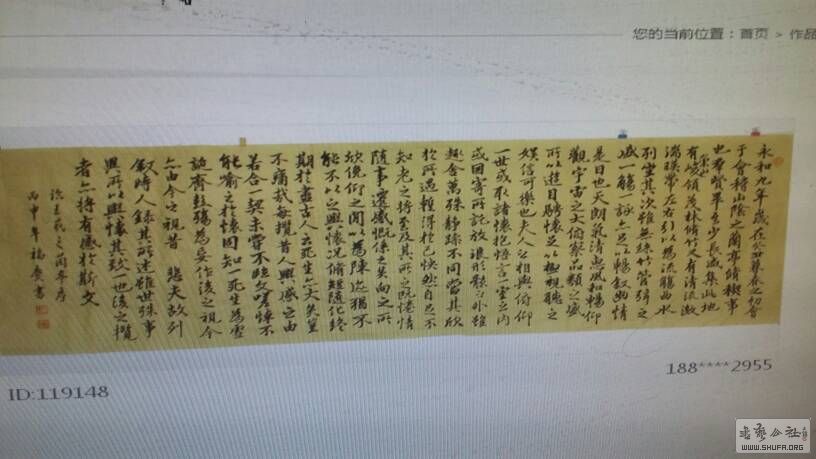 您的当前位置：首页 > 作品
永和九年歲在癸丑暮春之初會
于會稽山陰之蘭亭脩禊事
也羣賢畢至少長咸集此地
有崇山峻領茂林脩竹又有清流激
湍暎帶左右引以為流觴曲水
列坐其次雖無絲竹管弦之
盛一觴一詠亦足以暢叙幽情
是日也天朗氣清惠風和暢仰
觀宇宙之大俯察品類之盛
所以遊目騁懷足以極視聽之
娛信可樂也夫人之相與俯仰
一世或取諸懷抱悟言一室之內
或因寄所託放浪形骸之外雖
趣舍萬殊靜躁不同當其欣
於所遇暫得於己快然自足不
知老之將至及其所之既惓情
隨事遷感慨係之矣向之所
欣俛仰之間以為陳迹猶不
能不以之興懷況脩短隨化終
期於盡古人云死生亦大矣豈
不痛哉每攬昔人興感之由
若合一契未嘗不臨文嗟悼不
能喻之於懷固知一死生為虛
誕齊彭殤為妄作後之視今
亦由今之視昔 悲夫故列
叙時人錄其所述雖世殊事
異所以興懷其致一也後之攬
者亦將有感於斯文
臨王羲之蘭亭序
丙申年 福廣書
ID:119148
188****2955
書法公社
WWW.SHUFA.ORG